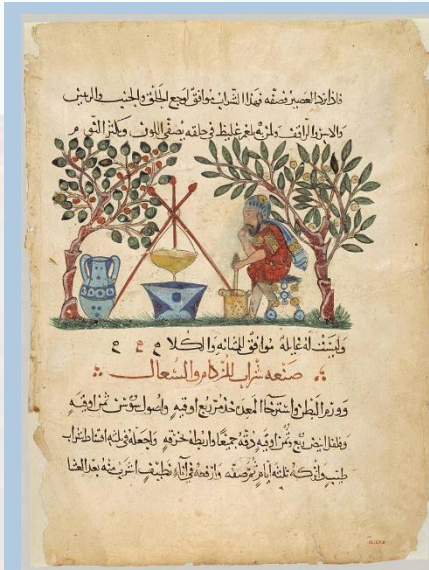 فاذا برد العصير فصفه فهذا الشراب موافق لوجع الحلق والجنب والرئتين
ولمن به بلغم غليظ في حلقه يصفي اللون ويكثر النوم
موافق للمثانه والكلا
صنعه شراب للزكام والسعال
وورم البطن واسترخا المعده خذ مر ربع اوقيه واصول سوسن ثمن اوقيه
وفلفل ابيض ربع وثمن اوقيه دقه جميعا واربطه خرقه واجعله في ثلثه اقساط شراب
طيب واتركه ثلثه ايام ثم صفه وارفعه في اناء نظيف اشرب منه بعد العشا